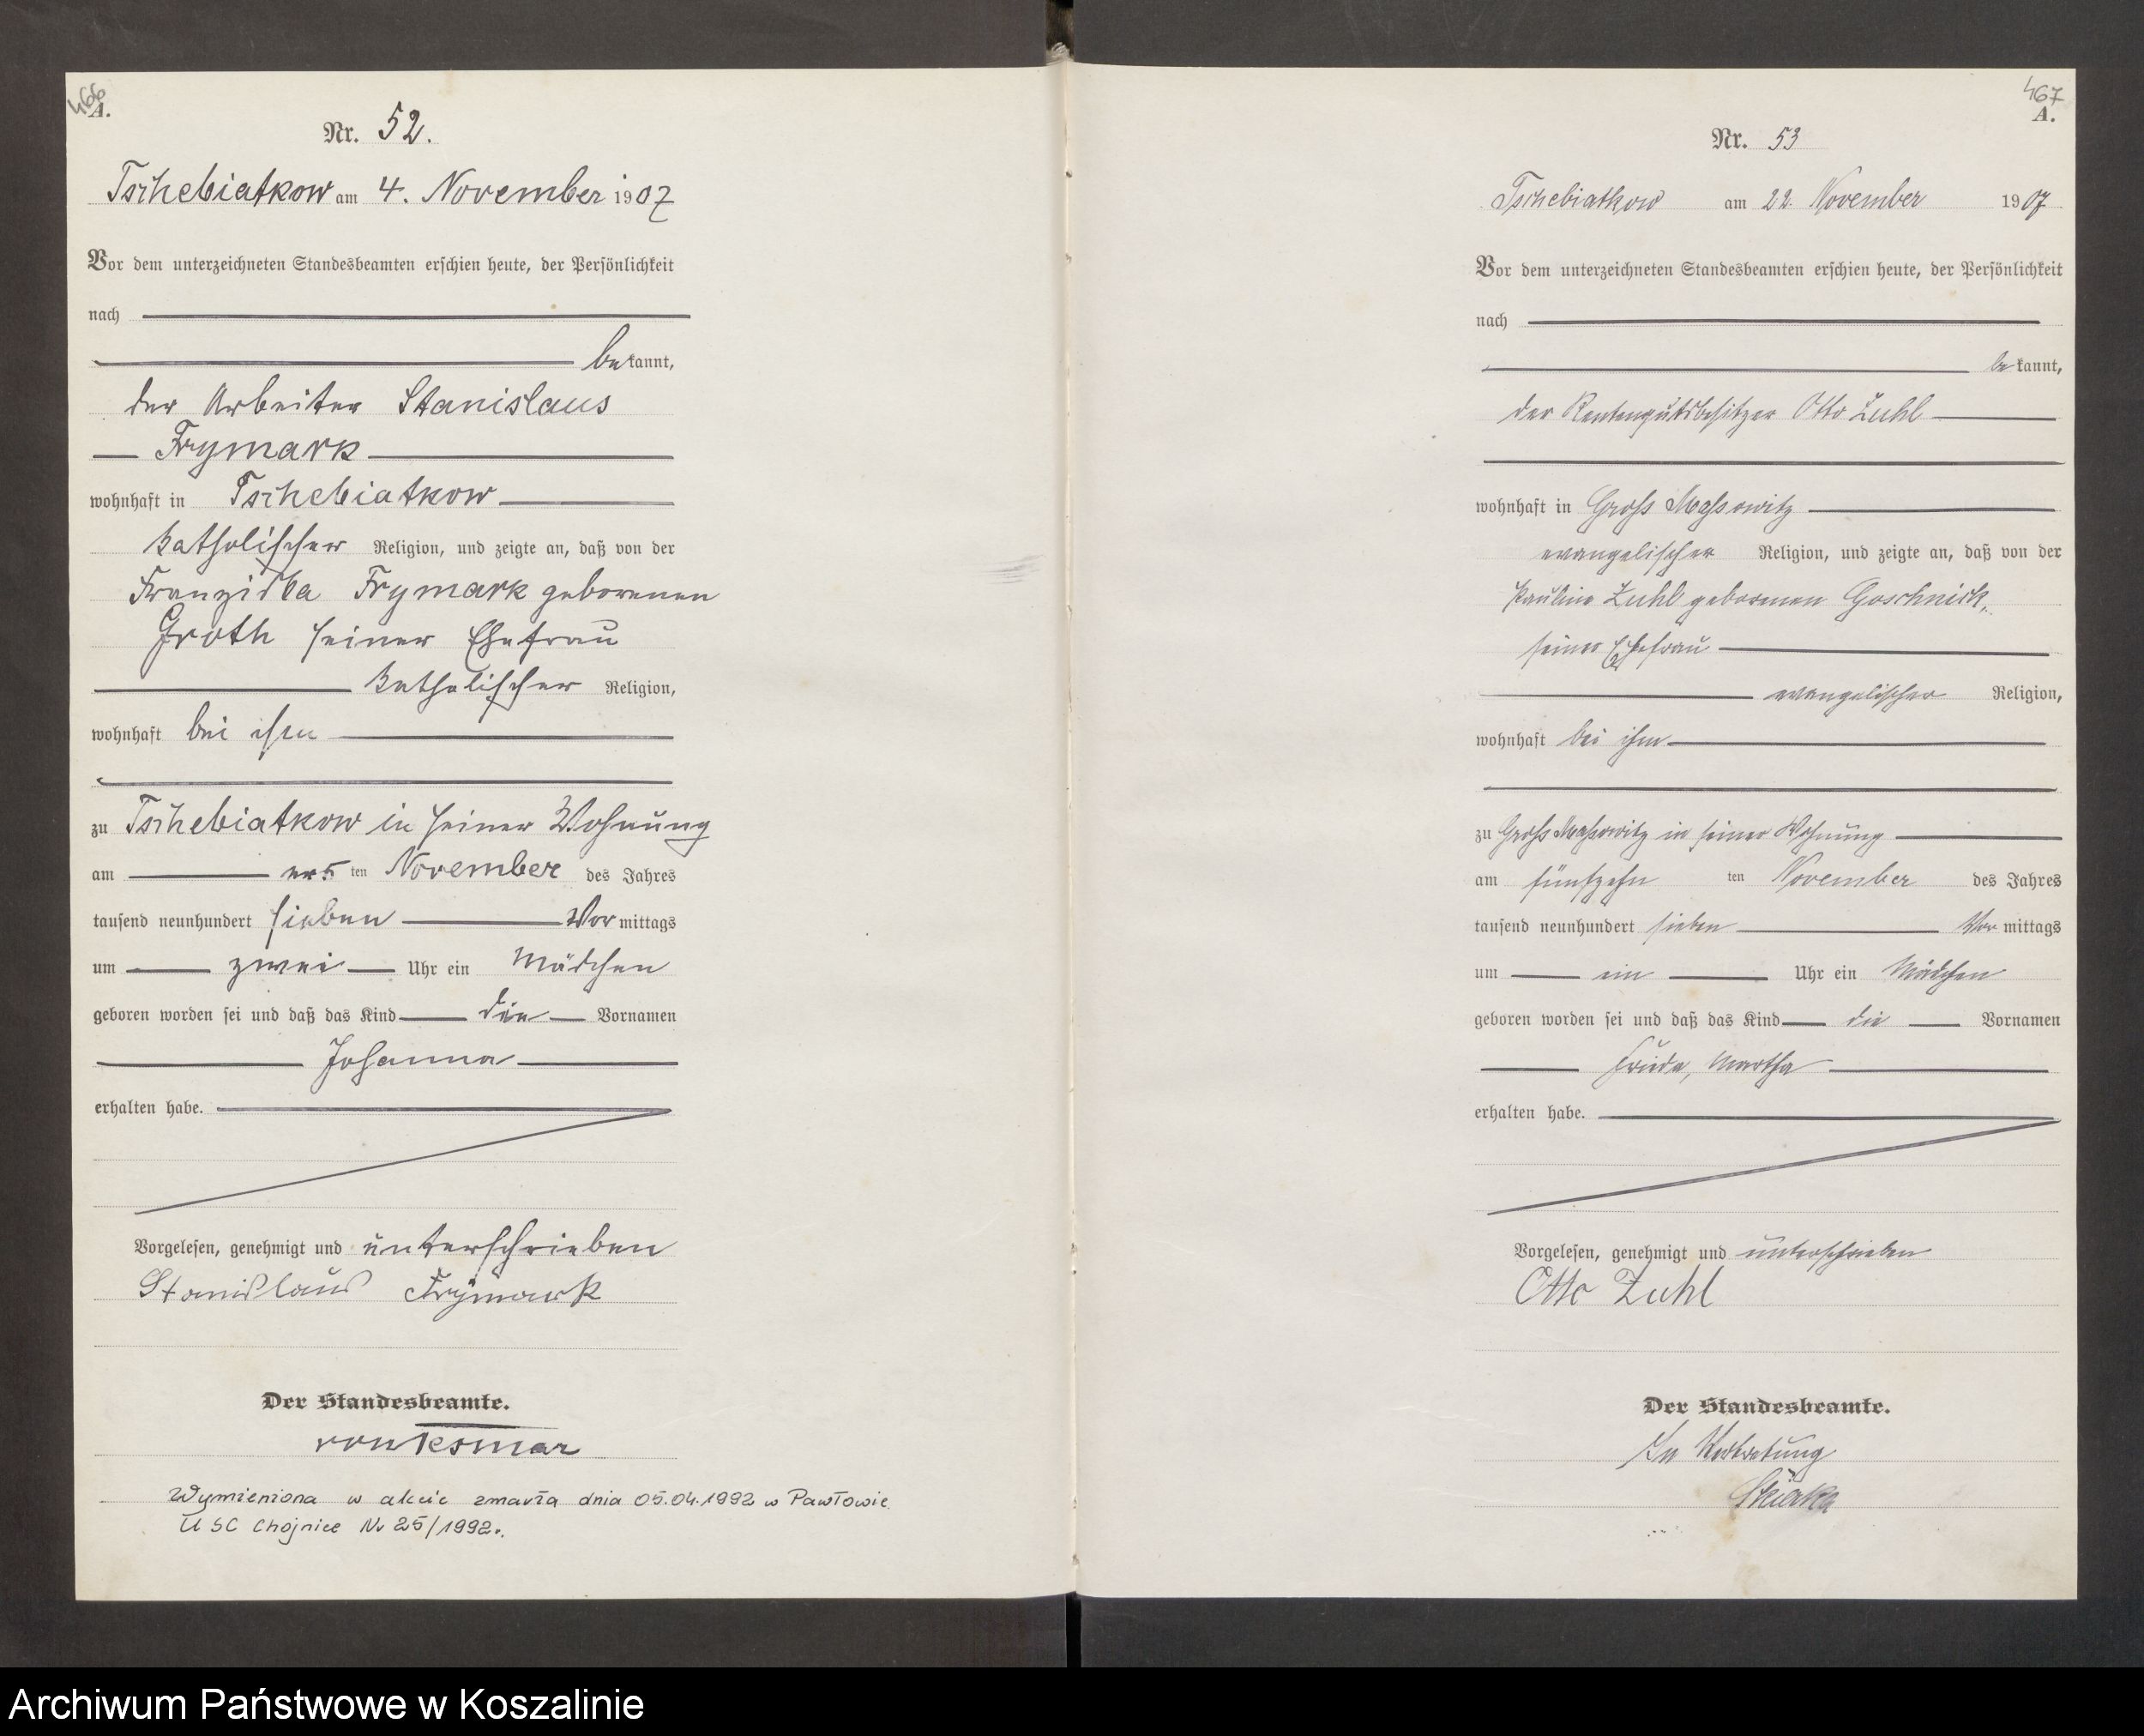 466
A.
Nr. 52.
Tschebiatkow am 4. November 1907
Vor dem unterzeichneten Standesbeamten erschien heute, der Persönlichkeit
nach
bekannt,
der Arbeiter Stanislaus
Frymark
wohnhaft in Tschebiatkow
katholischer Religion, und zeigte an, daß von der
Franziska Frymark geborenen
Groth seiner Ehefrau
katholischer Religion,
wohnhaft bei ihm
zu Tschebiatkow in seiner Wohnung
am ersten November des Jahres
tausend neunhundert sieben Vormittags
um zwei Uhr ein Mädchen
geboren worden sei und daß das Kind den Vornamen
Johanna
erhalten habe.
Vorgelesen, genehmigt und unterschrieben
Stanislaus Frymark
Der Standesbeamte.
Wymieniona w akcie zmarła dnia 05.04.1992 w Pawłowie
USC Chojnice Nr 25/1992.
467
A.
Nr. 53
Tschebiatkow am 22. November 1907
Vor dem unterzeichneten Standesbeamten erschien heute, der Persönlichkeit
nach
bekannt,
der Rentengutsbesitzer Otto Zuhl
wohnhaft in Gross Massowitz
evangelischer Religion, und zeigte an, daß von der
Pauline Zuhl geborenen Goschnick,
seiner Ehefrau
evangelischer Religion,
wohnhaft bei ihm
zu Gross Massowitz in seiner Wohnung
am fünfzehnten November des Jahres
tausend neunhundert sieben Vormittags
um ein Uhr ein Mädchen
geboren worden sei und daß das Kind die Vornamen
Frieda, Martha
erhalten habe.
Vorgelesen, genehmigt und unterschrieben
Otto Zuhl
Der Standesbeamte.
In Vertretung
Archiwum Państwowe w Koszalinie